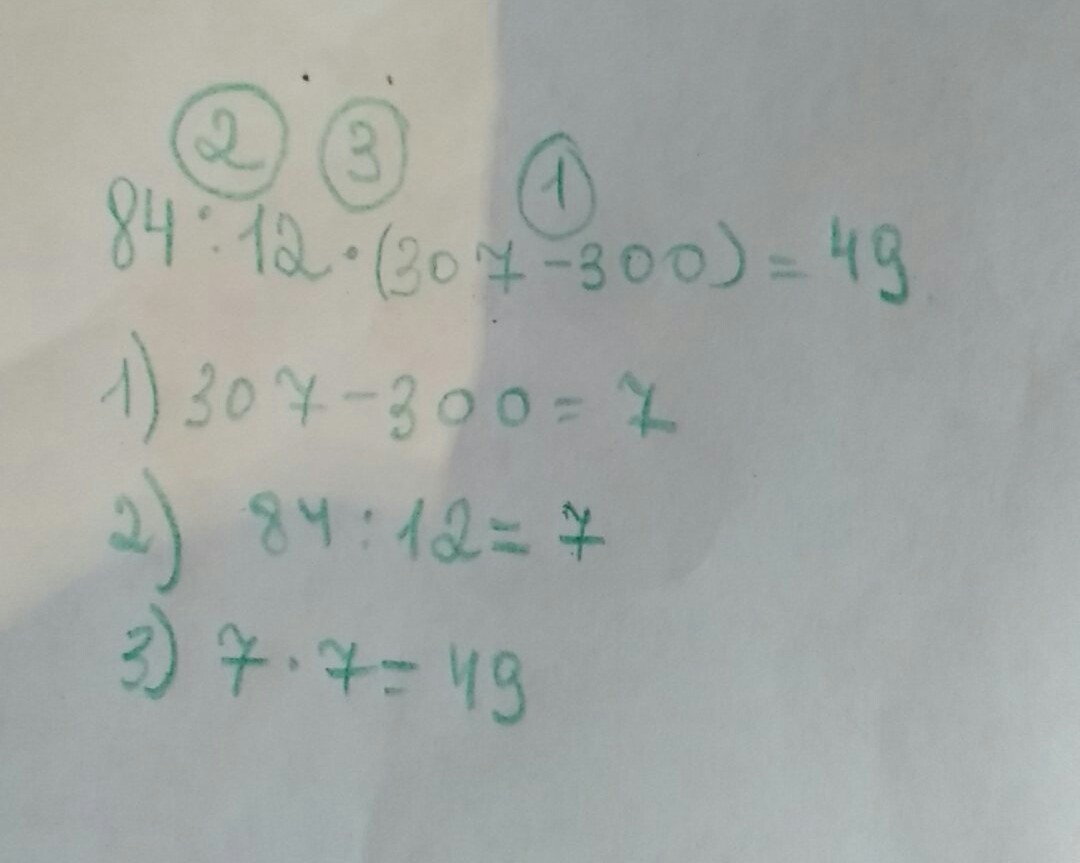 2 3 1
84:12·(307-300)=49
1) 307-300=7
2) 84:12=7
3) 7·7=49